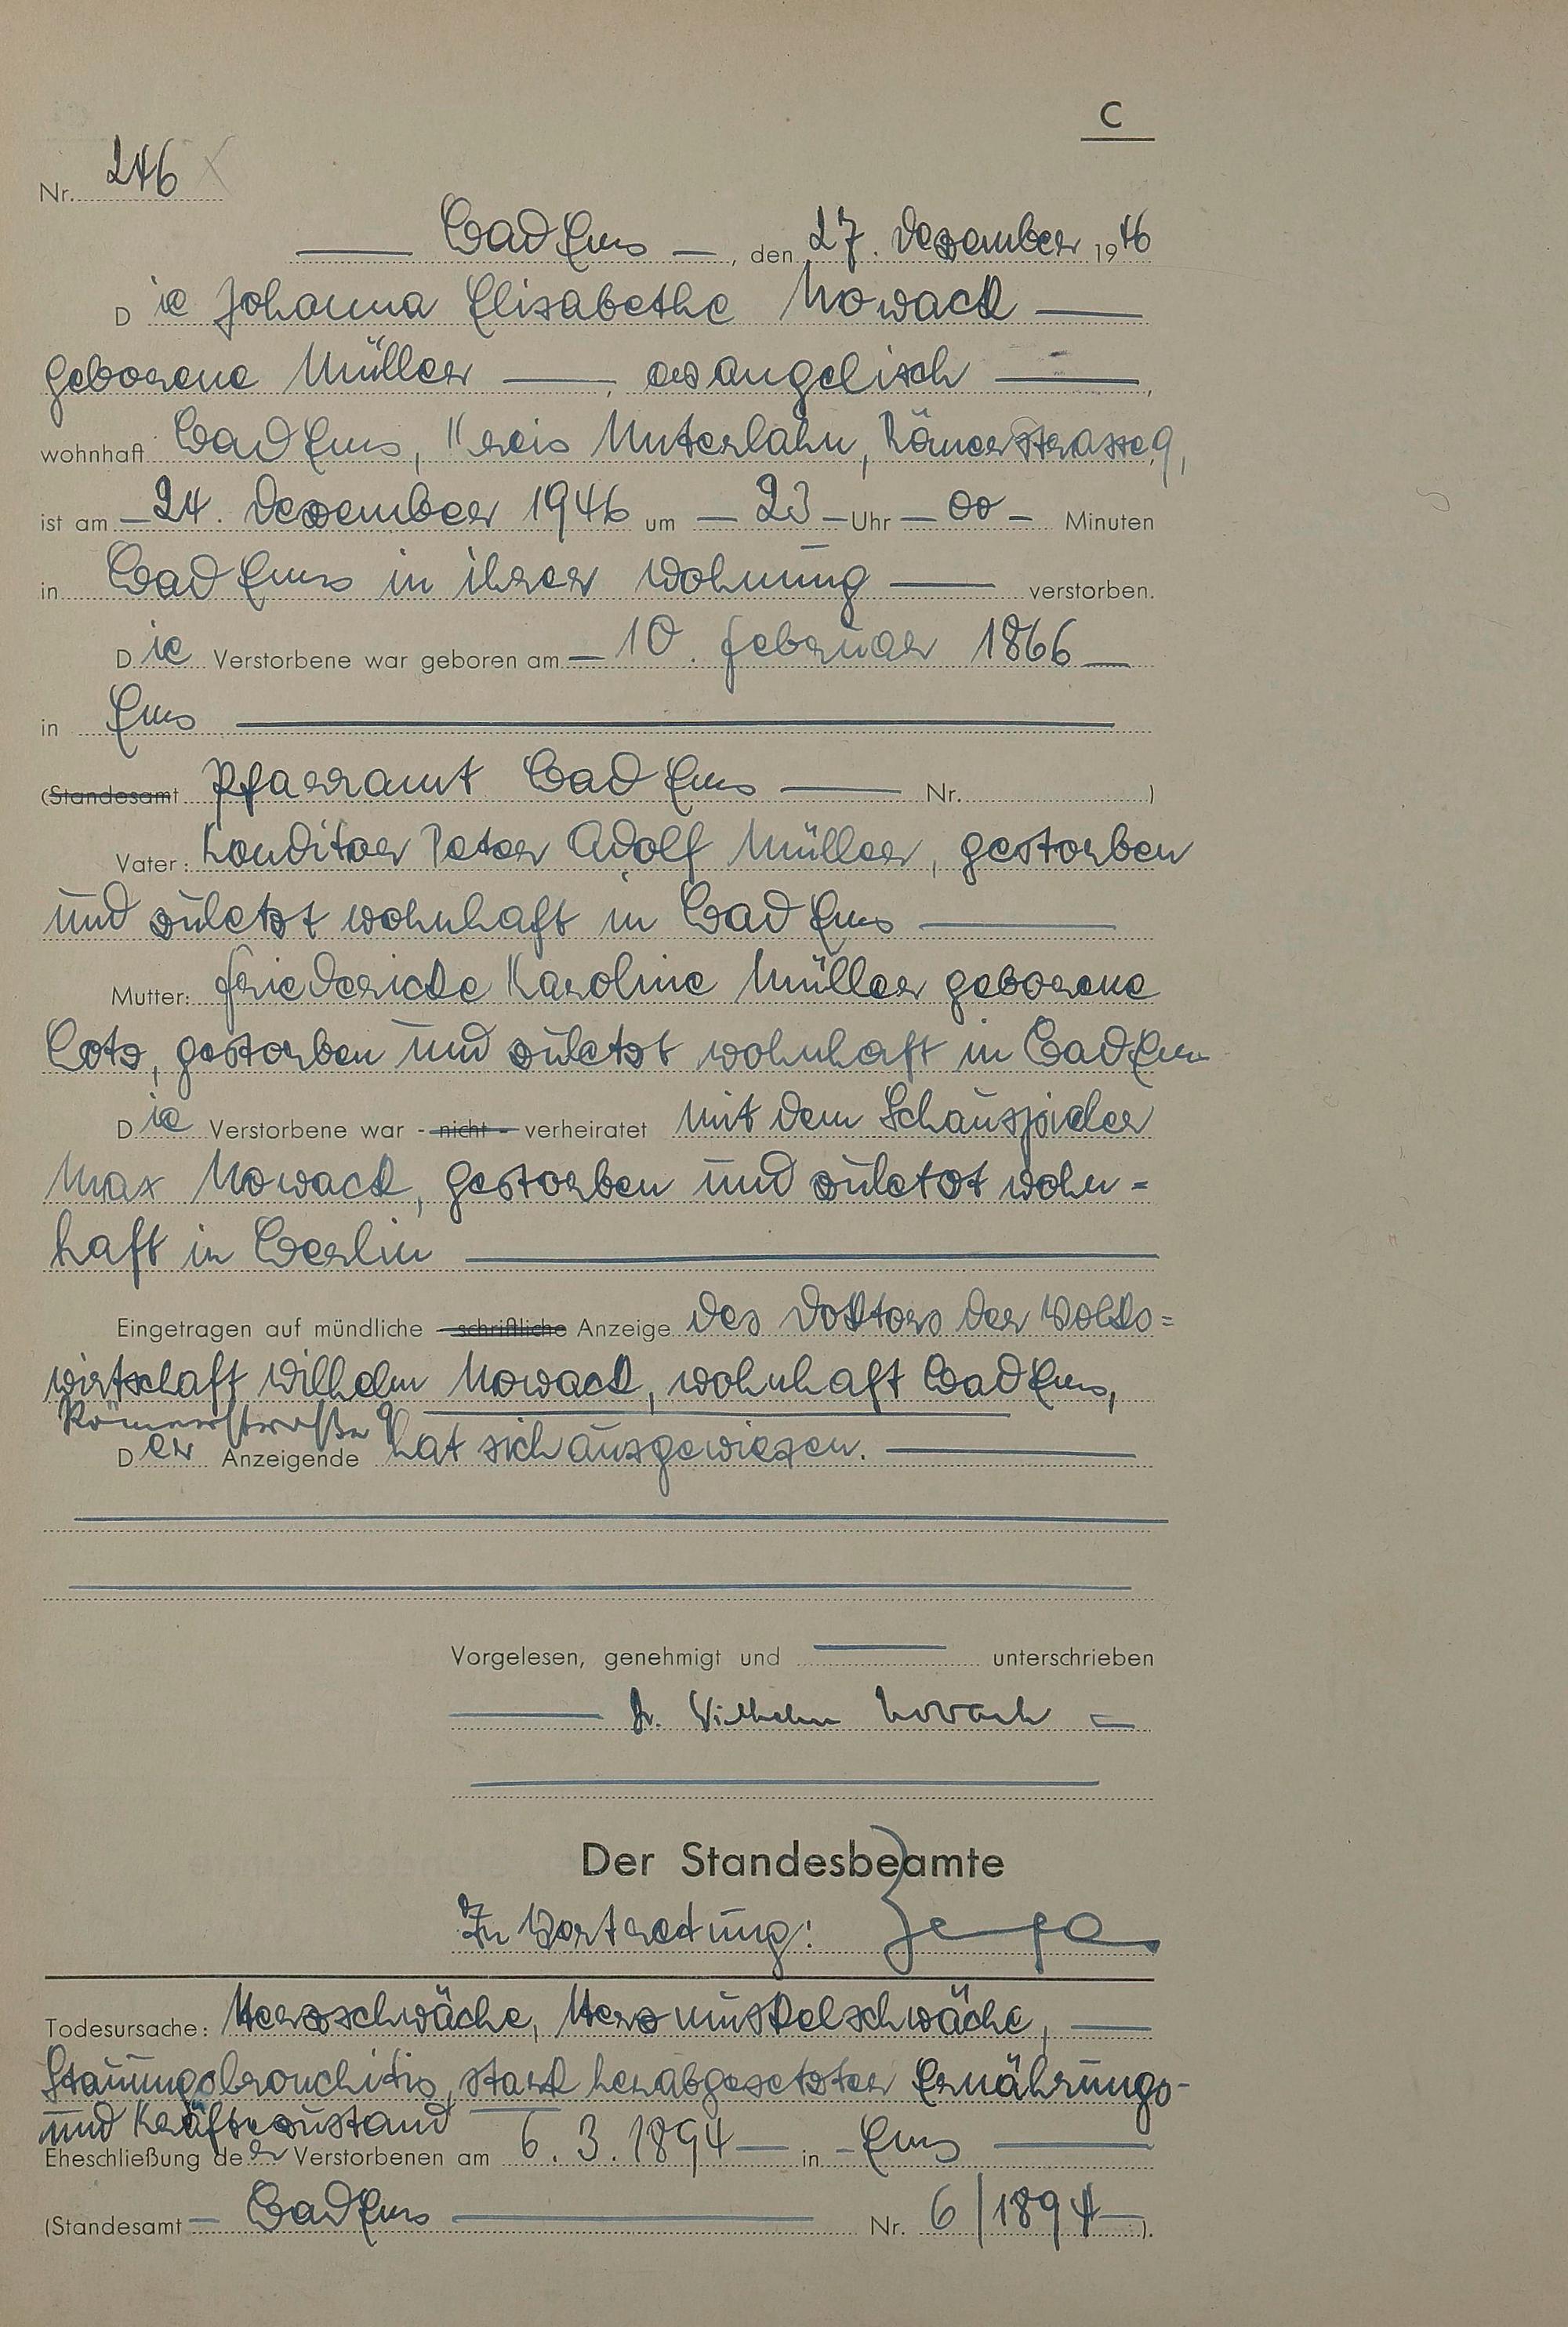 C
Nr. 246
Bad Ems, den 27. Dezember 1946
Die Johanna Elisabethe Nowack
geborene Müller, evangelisch,
wohnhaft Bad Ems, Kreis Unterlahn, Römerstrasse 9,
ist am 24. Dezember 1946 um 23 Uhr 00 Minuten
in Bad Ems in ihrer Wohnung verstorben.
Die Verstorbene war geboren am 10. Februar 1866
in Ems
(Standesamt Pfarramt Bad Ems Nr. )
Vater: Konditor Peter Adolf Müller, gestorben
und zuletzt wohnhaft in Bad Ems
Mutter: Friedericke Karoline Müller geborene
Lotz, gestorben und zuletzt wohnhaft in Bad Ems
Die Verstorbene war - nicht - verheiratet mit dem Schauspieler
Max Nowack, gestorben und zuletzt wohn=
haft in Berlin
Eingetragen auf mündliche - schriftliche Anzeige des Doktors der Volks=
wirtschaft Wilhelm Nowack, wohnhaft Bad Ems,
Römerstraße 9
Der Anzeigende hat sich ausgewiesen.
Vorgelesen, genehmigt und unterschrieben
Dr. Wilhelm Nowack
Der Standesbeamte
In Vertretung:
Todesursache: Herzschwäche, Herzmuskelschwäche,
Stauungsbronchitis, stark herabgesetzter Ernährungs-
und Kräftezustand
Eheschließung der Verstorbenen am 6. 3. 1894 in Ems
(Standesamt Bad Ems Nr. 6/1894).